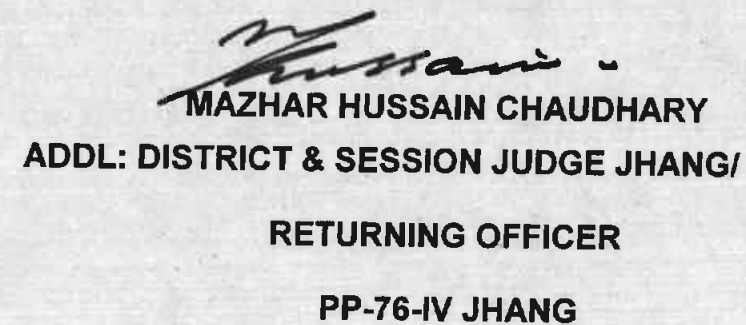 Hussain
MAZHAR HUSSAIN CHAUDHARY
ADDL: DISTRICT & SESSION JUDGE JHANG/
RETURNING OFFICER
PP-76-IV JHANG